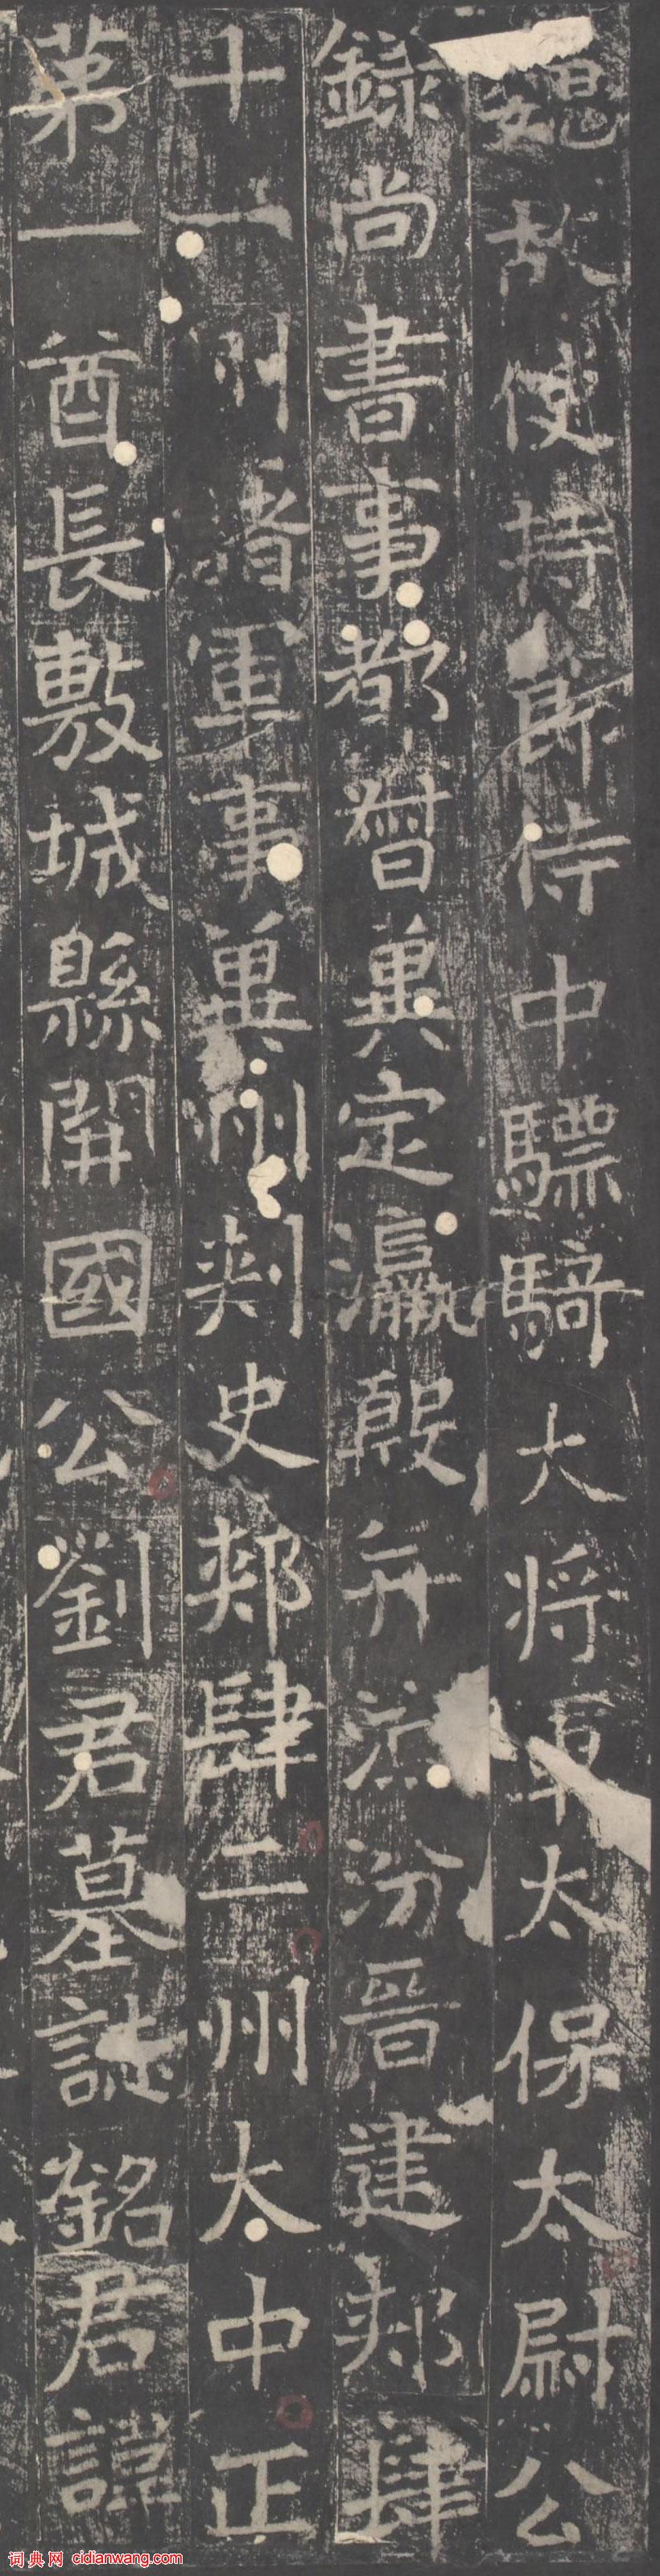 魏故使持節侍中驃騎大将軍太保太尉公
錄尚書事都督冀定瀛殷并涼汾晉建郟肆
十一州諸軍事冀州刺史郟肆二州大中正
第一酋長敷城縣開國公劉君墓誌銘君諱
词典网 cidianwang.com